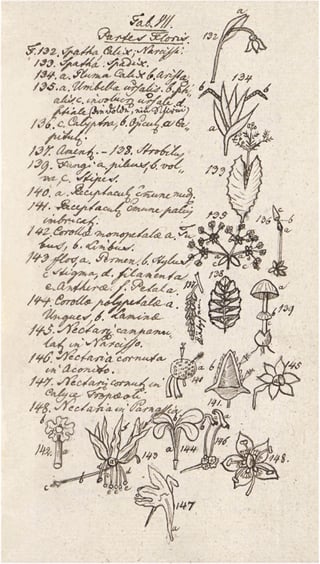 Tab. VII.
Partes Floris.
F. 132. Spatha Calix, Narcissi.
133. Spatha Spadix.
134. a. Gluma Calix b. Arista.
135. a. Umbella ursalis b. pti-
alis c. involucr ursale d.
ptiale
136. c. Calyptra, b. Opicul a. Ca-
pitul
137. Ament. – 138. Strobilus
139. Fungi a. pileus, b. vol-
va c. Stipes.
140. a. Receptacul cmune nud
141. Receptacul cmune paleis
imbricat.
142. Corollæ monopetalæ a. Tu-
bus, b. Limbus.
143. flos, a. Germen, b. Stylus
c Stigma, d. filamenta
e. Antheræ f. Petala.
144. Corollæ polypetalæ a.
Ungues, b. Laminæ
145. Nectari campanu-
lat in Narcisso.
146. Nectaria cornuta
in Aconito.
147. Nectari cornut in
Calyce Tropæoli.
148. Nectaria in Parnassia
132
a
134
b
b
a
133
135
136
c
b
a
137
138
139
a
b
c
140
a
b
141
145
142
a
b
143
a
b
c
d
e
f
144
a
b
146
a
148.
147
a